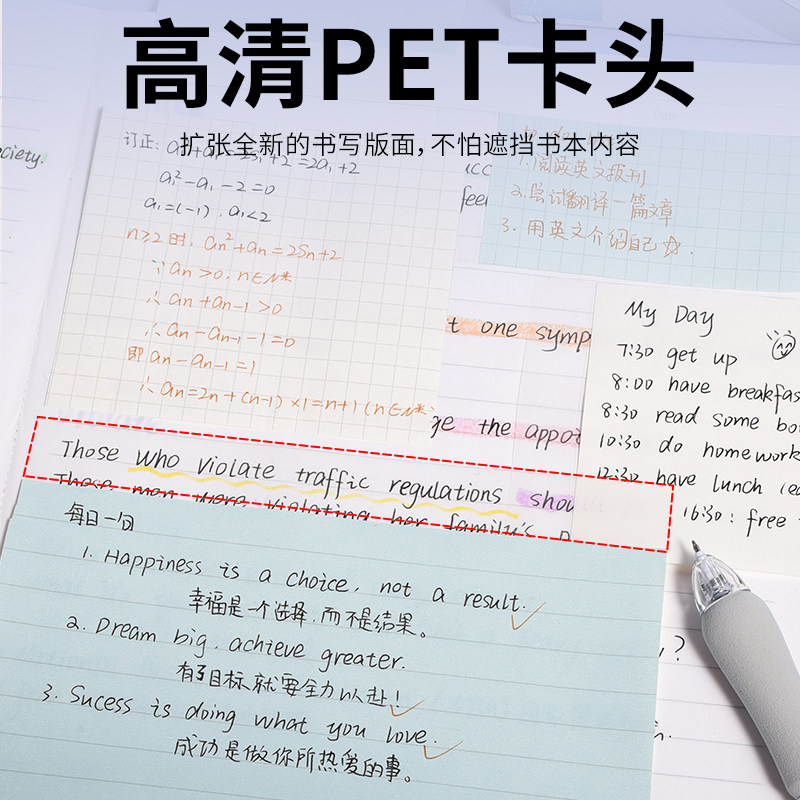 高清PET卡头
扩张全新的书写版面,不怕遮挡书本内容
ciety!
订正:
a₁²-a₁-2=0
a₁=(-1), a₁<2
n≥2时, an²+an=2Sn+2
∵an>0, n∈N*
∴an+an-1>0
∴an-an-1-1=0
即an-an-1=1
∴an=2n+(n-1)×1=n+1(n∈N*
1.阅读英文报刊
2.尝试翻译一篇文章
3.用英文介绍自己☆.
t one symp
ge the appoi
My Day
7:30 get up
8:00 have breakfas
8:30 read some bo
10:30 do homework
12:30 have lunch
16:30: free
Those who violate traffic regulations shou
Those men were violating her family's
每日一句
1. Happiness is a choice, not a result.
幸福是一个选择,而不是结果。
2. Dream big, achieve greater.
有了目标就要全力以赴!
3. Sucess is doing what you love.
成功是做你所热爱的事。
?